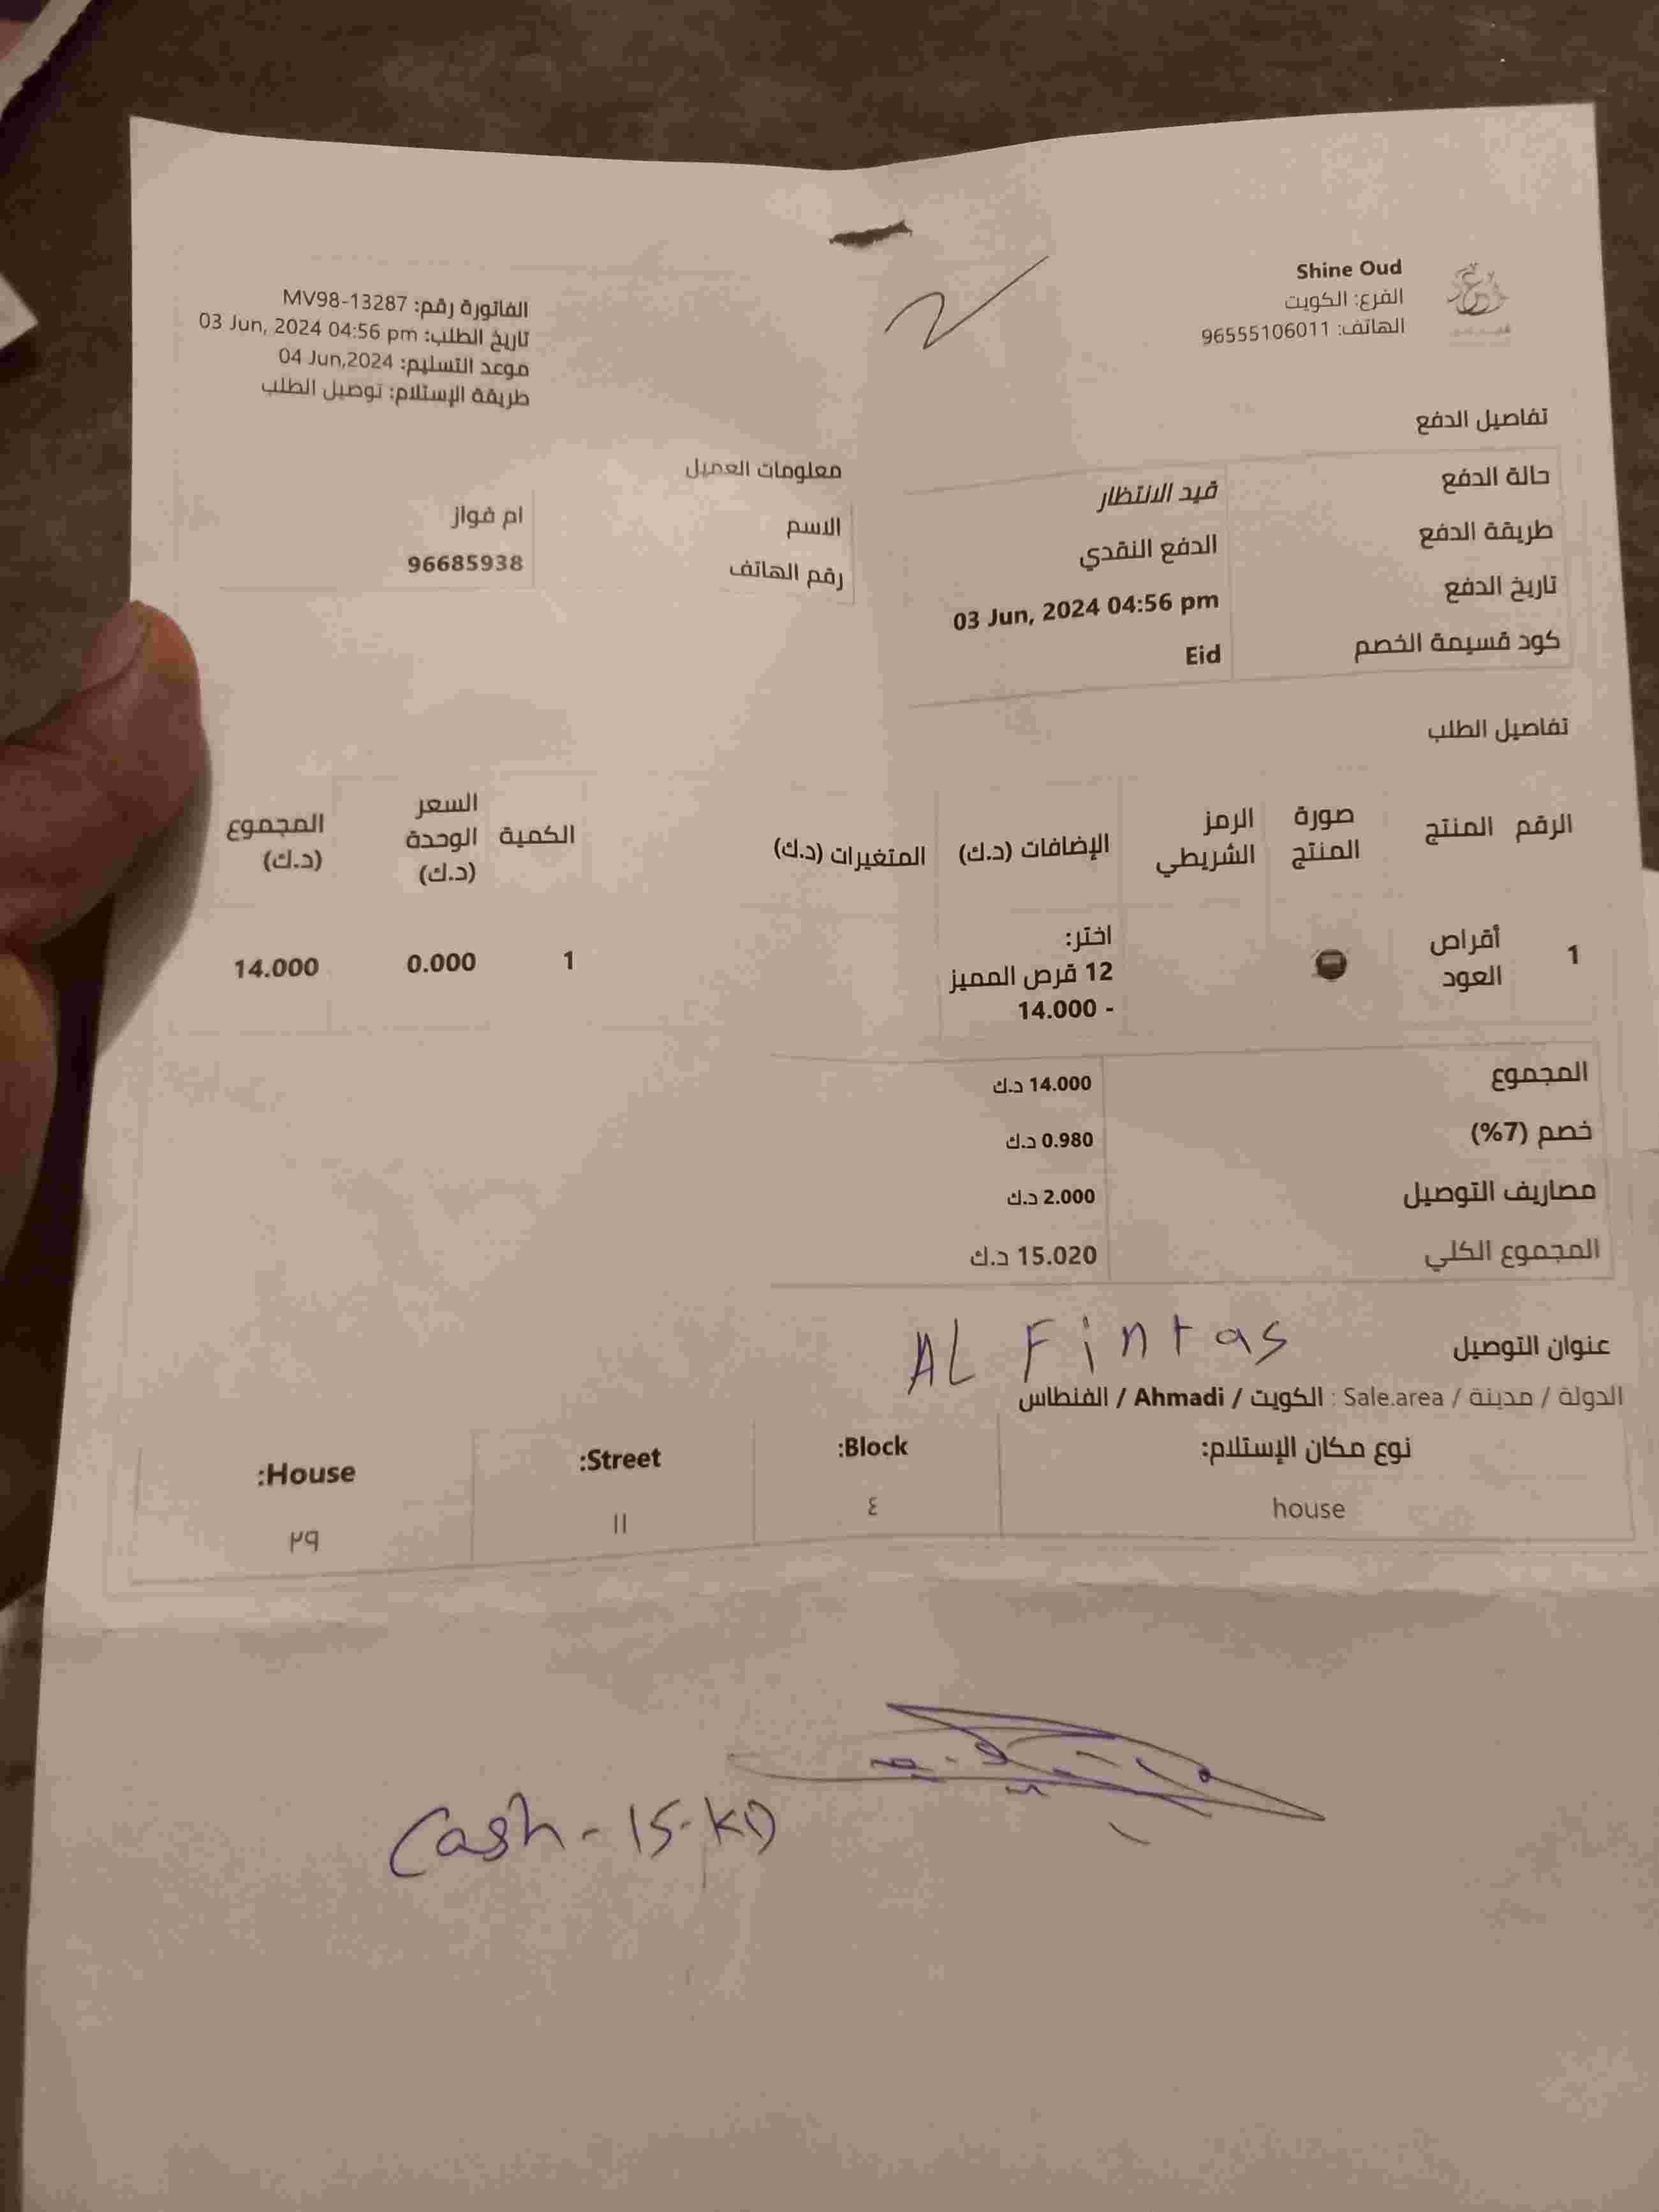 Shine Oud
الفرع: الكويت
الهاتف: 96555106011
الفاتورة رقم: MV98-13287
تاريخ الطلب: 03 Jun, 2024 04:56 pm
موعد التسليم: 04 Jun,2024
طريقة الإستلام: توصيل الطلب
تفاصيل الدفع
حالة الدفع قيد الانتظار
طريقة الدفع الدفع النقدي
تاريخ الدفع 03 Jun, 2024 04:56 pm
كود قسيمة الخصم Eid
معلومات العميل
الاسم ام فواز
رقم الهاتف 96685938
تفاصيل الطلب
الرقم المنتج صورة المنتج الرمز الشريطي الإضافات (د.ك) المتغيرات (د.ك) الكمية السعر الوحدة (د.ك) المجموع (د.ك)
1 أقراص العود اختر: 12 قرص المميز - 14.000 1 0.000 14.000
المجموع 14.000 د.ك
خصم (7%) 0.980 د.ك
مصاريف التوصيل 2.000 د.ك
المجموع الكلي 15.020 د.ك
عنوان التوصيل AL Fintas
الدولة / مدينة / Sale.area : الكويت / Ahmadi / الفنطاس
نوع مكان الإستلام: Block: Street: House:
house ٤ ١١ ٢٩
Cash - 15-KD